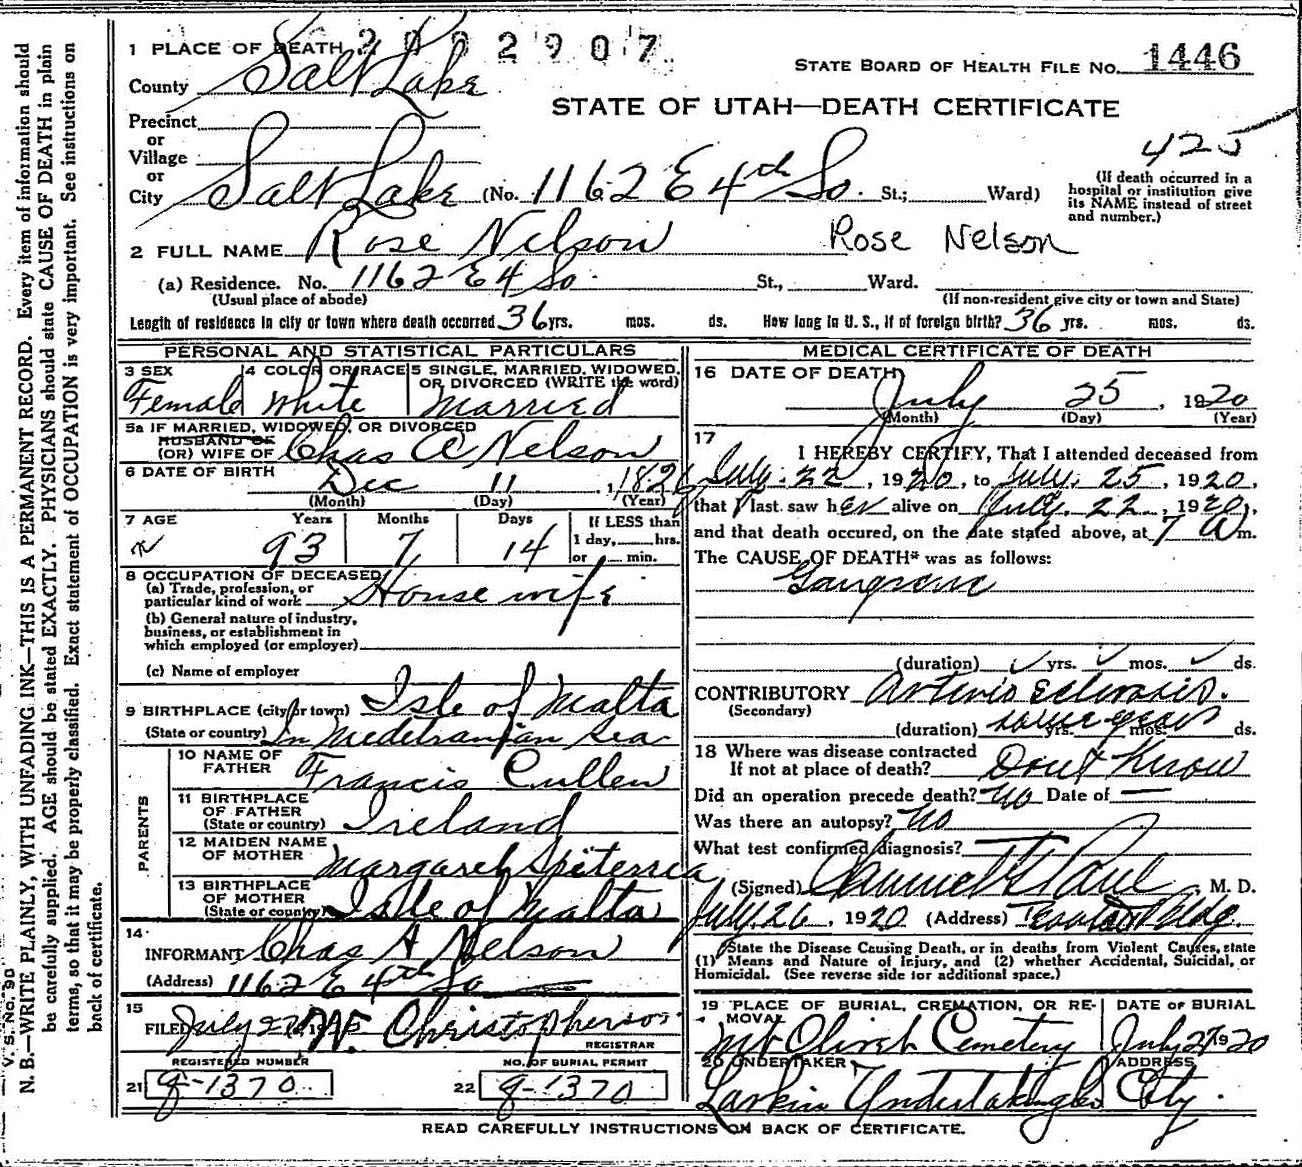 2002907
1 PLACE OF DEATH
STATE BOARD OF HEALTH FILE NO. 1446
County Salt Lake
STATE OF UTAH—DEATH CERTIFICATE
Precinct
or
Village
or
425
City Salt Lake (No. 1162 E 4th So. St.; Ward)
(If death occurred in a
hospital or institution give
its NAME instead of street
and number.)
2 FULL NAME Rose Nelson Rose Nelson
(a) Residence. No. 1162 E 4 So. St., Ward.
(Usual place of abode) (If non-resident give city or town and State)
Length of residence in city or town where death occurred 36 yrs. mos. ds. How long in U. S., if of foreign birth? 36 yrs. mos. ds.
PERSONAL AND STATISTICAL PARTICULARS
3 SEX 4 COLOR OR RACE 5 SINGLE, MARRIED, WIDOWED,
OR DIVORCED (WRITE the word)
Female White Married
5a IF MARRIED, WIDOWED, OR DIVORCED
HUSBAND OF
(OR) WIFE OF Chas A Nelson
6 DATE OF BIRTH Dec 11, 1826
(Month) (Day) (Year)
7 AGE Years Months Days If LESS than
1 day, hrs.
or min.
93 7 14
8 OCCUPATION OF DECEASED
(a) Trade, profession, or
particular kind of work House wife
(b) General nature of industry,
business, or establishment in
which employed (or employer)
(c) Name of employer
9 BIRTHPLACE (city or town) Isle of Malta
(State or country) In Medetranian Sea
PARENTS
10 NAME OF
FATHER Francis Cullen
11 BIRTHPLACE
OF FATHER
(State or country) Ireland
12 MAIDEN NAME
OF MOTHER Margaret Spiterria
13 BIRTHPLACE
OF MOTHER
(State or country) Isle of Malta
14
INFORMANT Chas A Nelson
(Address) 1162 E 4th So
15
FILED July 27 W. Christopherson
REGISTRAR
REGISTERED NUMBER NO. OF BURIAL PERMIT
21 g-1370 22 g-1370
MEDICAL CERTIFICATE OF DEATH
16 DATE OF DEATH
July 25, 1920
(Month) (Day) (Year)
17
I HEREBY CERTIFY, That I attended deceased from
July. 22, 1920, to July. 25, 1920,
that I last saw her alive on July. 22, 1920,
and that death occured, on the date stated above, at 7 A m.
The CAUSE OF DEATH* was as follows:
Gangrene
(duration) yrs. mos. ds.
CONTRIBUTORY Arterio sclerosis.
(Secondary)
(duration) some years yrs. mos. ds.
18 Where was disease contracted
If not at place of death? Don't Know
Did an operation precede death? No Date of —
Was there an autopsy? No
What test confirmed diagnosis? —
(Signed) Samuel G Paul, M. D.
July. 26, 1920 (Address) Bldg.
*State the Disease Causing Death, or in deaths from Violent Causes, state
(1) Means and Nature of Injury, and (2) whether Accidental, Suicidal, or
Homicidal. (See reverse side for additional space.)
19 PLACE OF BURIAL, CREMATION, OR RE-
MOVAL
DATE OF BURIAL
Mt Olivet Cemetery July 27 1920
20 UNDERTAKER ADDRESS
Larkin Undertaking Co City.
READ CAREFULLY INSTRUCTIONS ON BACK OF CERTIFICATE.
V. S. No. 90
N. B.—WRITE PLAINLY, WITH UNFADING INK—THIS IS A PERMANENT RECORD. Every item of information should
be carefully supplied. AGE should be stated EXACTLY. PHYSICIANS should state CAUSE OF DEATH in plain
terms, so that it may be properly classified. Exact statement of OCCUPATION is very important. See instructions on
back of certificate.